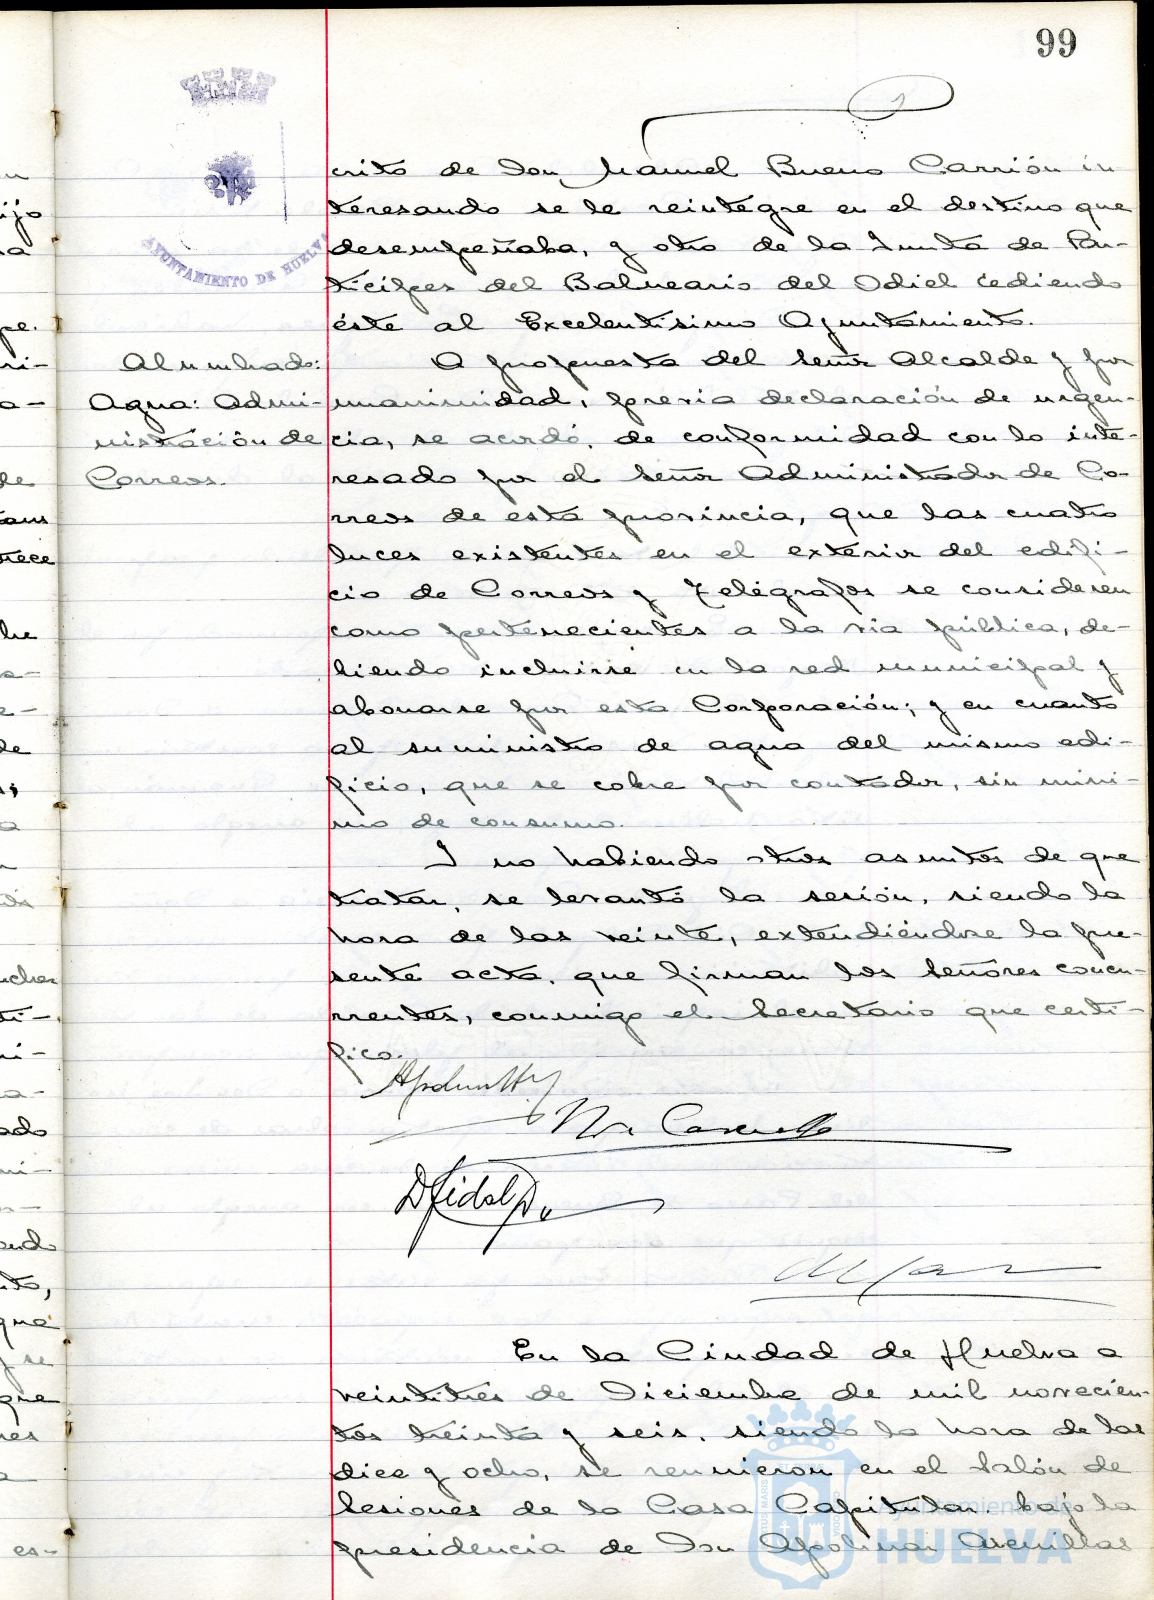 99
AYUNTAMIENTO DE HUELVA
crito de Don Manuel Bueno Carrión in-
teresando se le reintegre en el destino que
desempeñaba, y otro de la Junta de Par-
tícipes del Balneario del Odiel cediendo
éste al Excelentísimo Ayuntamiento.
Alumbrado:
Agua: Admi-
nistración de
Correos.
A propuesta del señor Alcalde y por
unanimidad, previa declaración de urgen-
cia, se acordó, de conformidad con lo inte-
resado por el señor Administrador de Co-
rreos de esta provincia, que las cuatro
luces existentes en el exterior del edifi-
cio de Correos y Telégrafos se consideren
como pertenecientes a la via pública, de-
biendo incluirse en la red municipal y
abonarse por esta Corporación; y en cuanto
al suministro de agua del mismo edi-
ficio, que se cobre por contador, sin míni-
mo de consumo.
Y no habiendo otros asuntos de que
tratar, se levantó la sesión, siendo la
hora de las veinte, extendiéndose la pre-
sente acta, que firman los señores concu-
rrentes, conmigo el Secretario que certi-
fico.
En la Ciudad de Huelva a
veintitrés de Diciembre de mil novecien-
tos treinta y seis, siendo la hora de las
diez y ocho, se reunieron en el Salón de
Sesiones de la Casa Capitular, bajo la
presidencia de Don Apolinar Arenillas
Ayuntamiento de
HUELVA